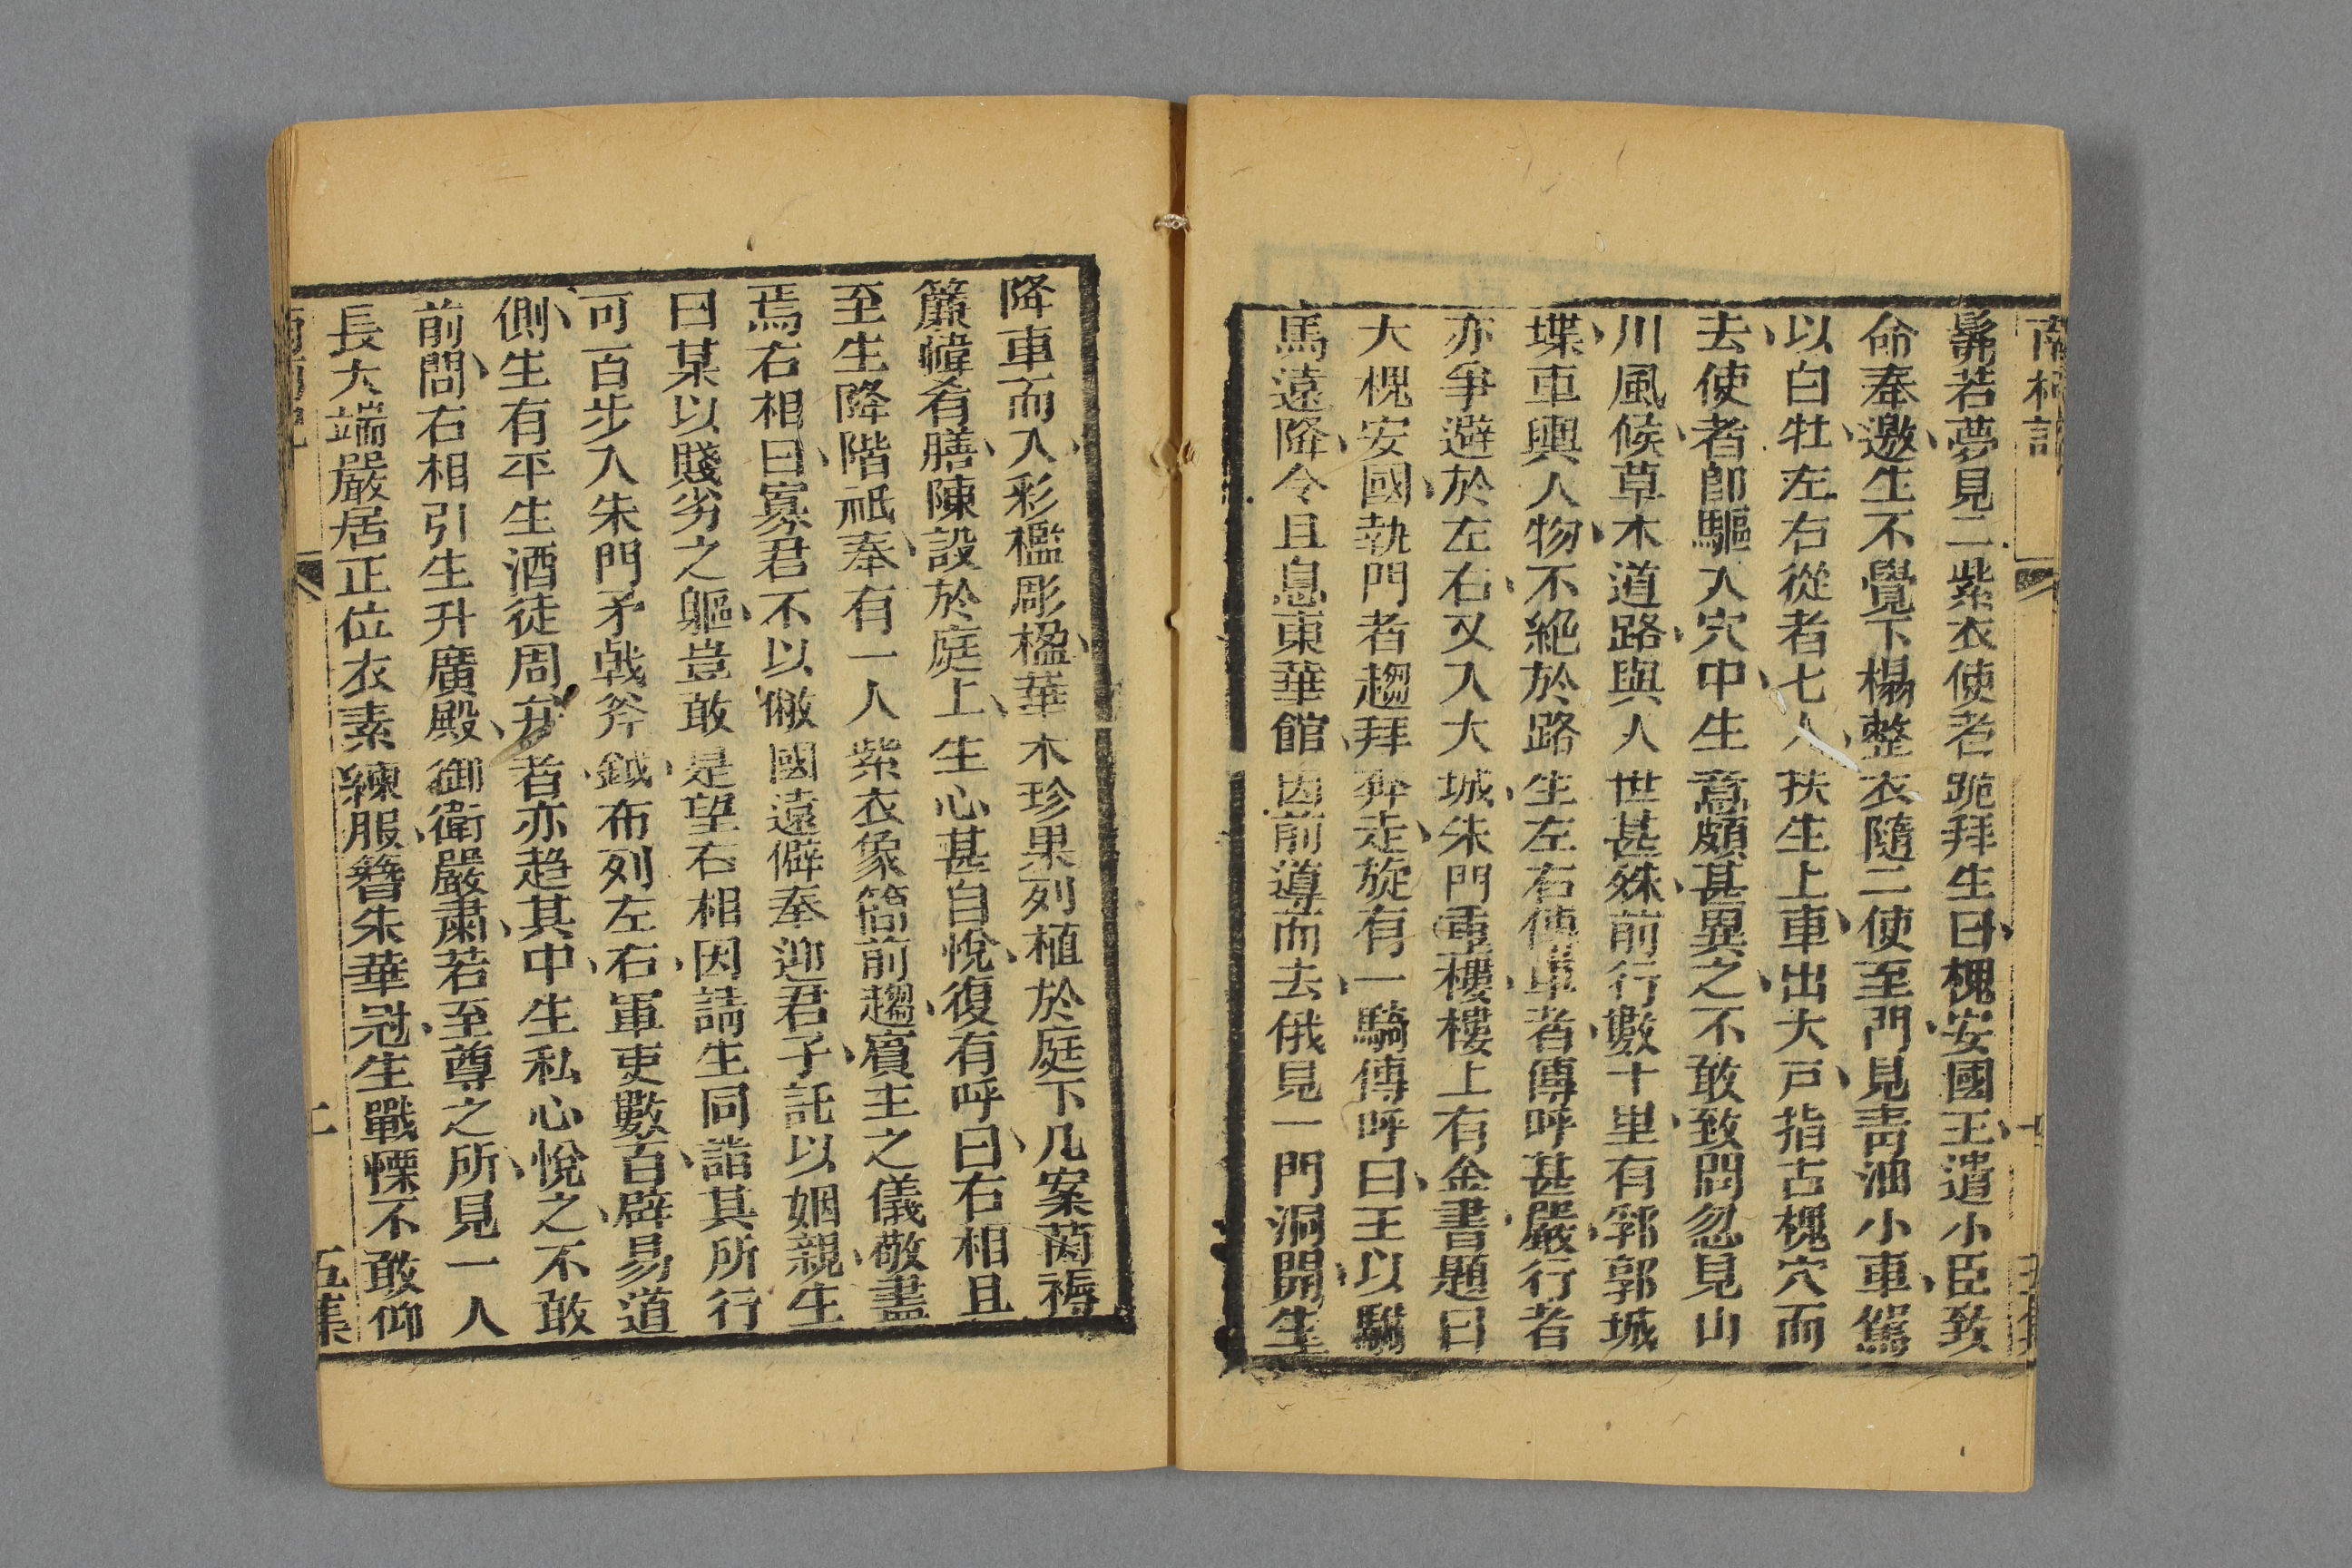 南柯記
髴若夢見二紫衣使者跪拜生曰槐安國王遣小臣致
命奉邀生不覺下榻整衣隨二使至門見靑油小車駕
以白牡左右從者七人扶生上車出大戸指古槐穴而
去使者卽驅入穴中生意頗甚異之不敢致問忽見山
川風候草木道路與人世甚殊前行數十里有郛郭城
堞車輿人物不絶於路生左右傳車者傳呼甚嚴行者
亦爭避於左右又入大城朱門重樓樓上有金書題曰
大槐安國執門者趨拜奔走旋有一騎傳呼曰王以駙
馬遠降令且息東華館因前導而去俄見一門洞開生
降車而入彩檻彫楹華木珍果列植於庭下几案茵褥
簾幃肴膳陳設於庭上生心甚自悅復有呼曰右相且
至生降階祗奉有一人紫衣象簡前趨賓主之儀敬盡
焉右相曰寡君不以僘國遠僻奉迎君子託以姻親生
曰某以賤劣之軀豈敢是望右相因請生同詣其所行
可百步入朱門矛戟斧鉞布列左右軍吏數百辟易道
側生有平生酒徒周弁者亦趋其中生私心悅之不敢
前問右相引生升廣殿御衛嚴肅若至尊之所見一人
長大端嚴居正位衣素練服簪朱華冠生戰慄不敢仰
五集